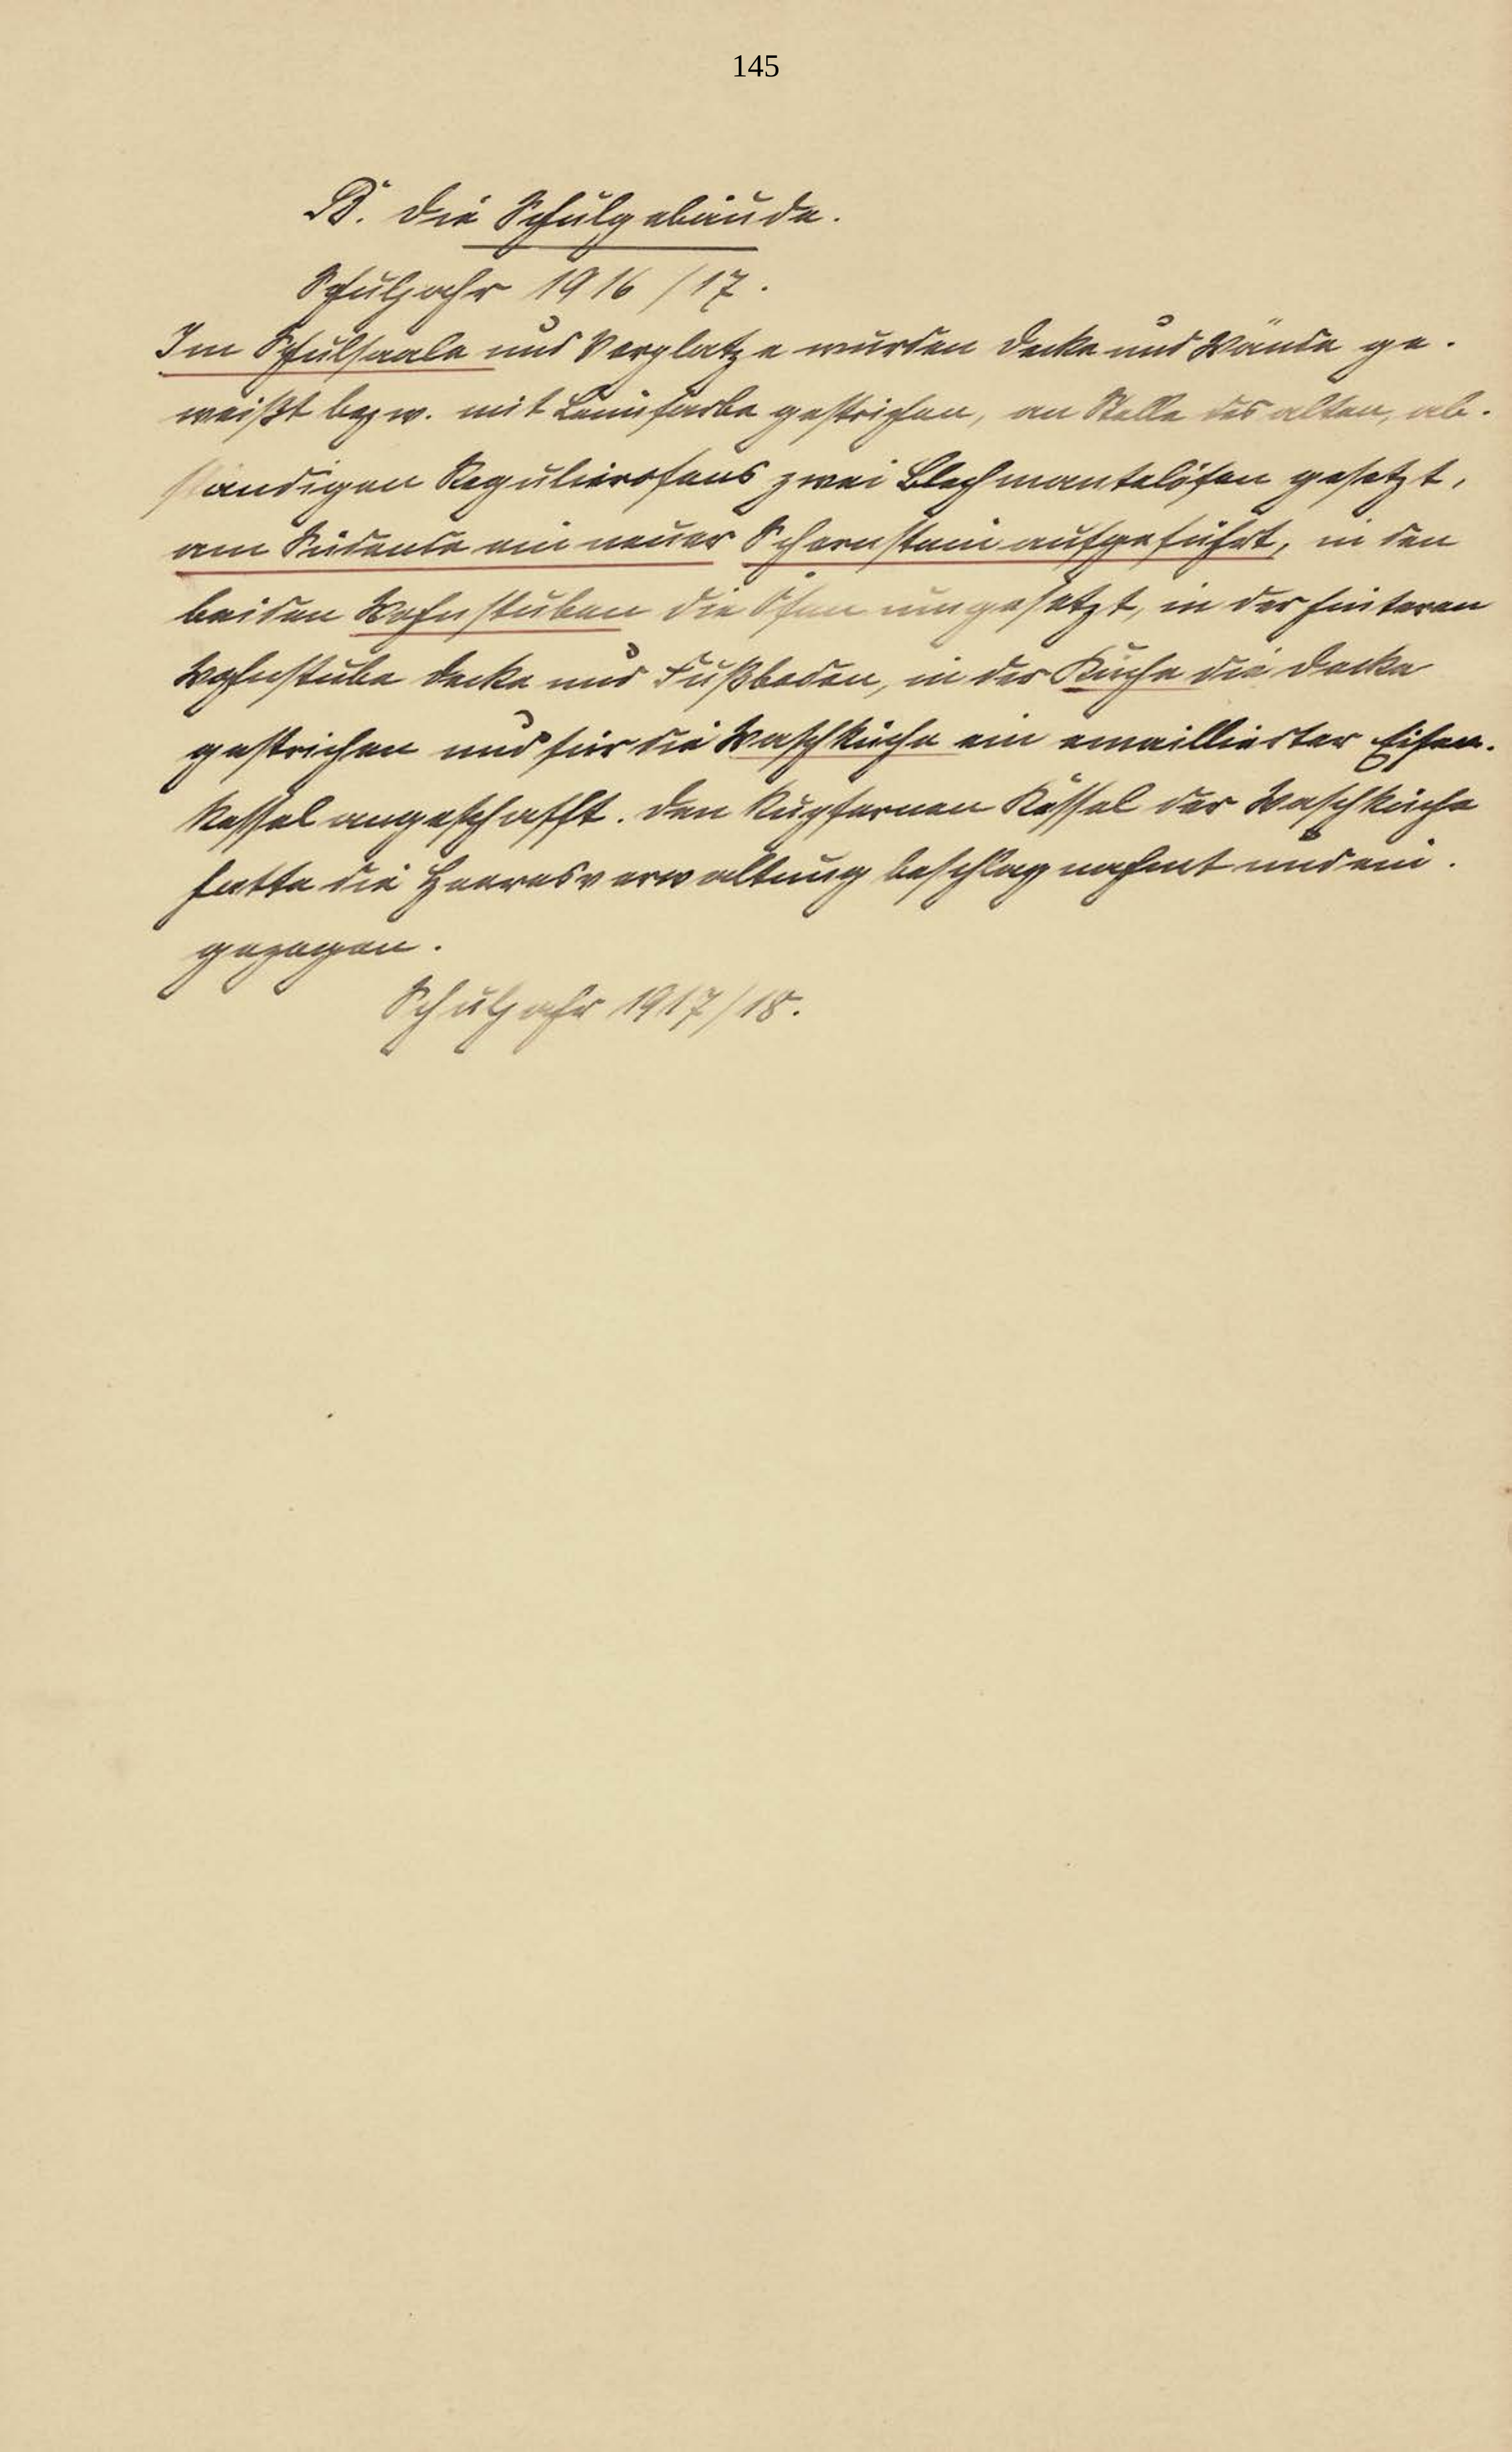 145
B. Die Schulgebäude.
Schuljahr 1916/17.
Im Schulsaale und Vorplatze wurden Decke und Wände ge-
weißt bezw. mit Leimfarbe gestrichen, an Stelle des alten, ab-
ständigen Regulierofens zwei Blechmantelöfen gesetzt,
am Südende ein neuer Schornstein aufgeführt, in den
beiden Wohnstuben die Öfen umgesetzt, in der hinteren
Wohnstube Decke und Fußboden, in der Küche die Decke
gestrichen und für die Waschküche ein emaillierter Eisen-
kessel angeschafft. Den kupfernen Kessel der Waschküche
hatte die Heeresverwaltung beschlagnahmt und ein-
gezogen.
Schuljahr 1917/18.